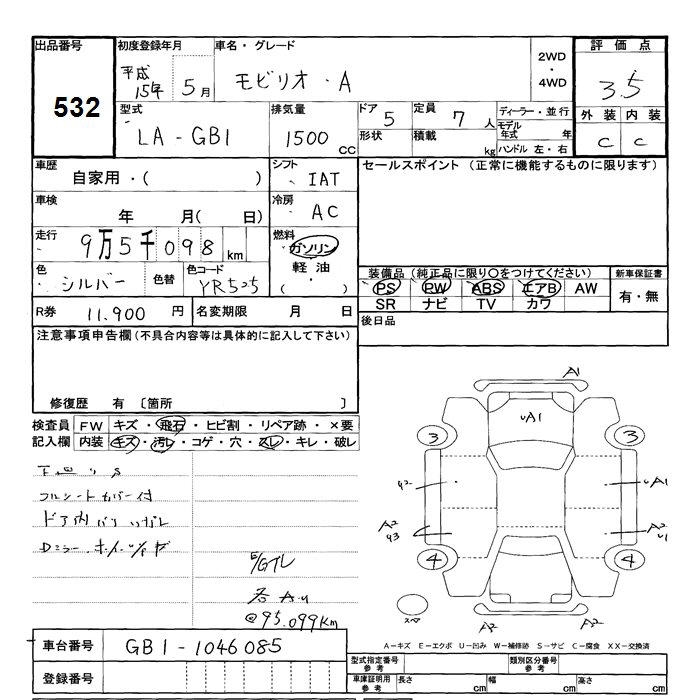 出品番号 初度登録年月 車名・グレード 評価点
532 平成15年 5月 モビリオ・A 2WD・4WD 3.5
型式 排気量 ドア 5 定員 7人 ディーラー・並行 外装 内装
LA-GB1 1500cc 形状 積載 kg モデル年式 年 C C
ハンドル 左・右
車歴 自家用・( ) シフト IAT セールスポイント (正常に機能するものに限ります)
車検 年 月( 日) 冷房 AC
走行 9万5千098km 燃料 ガソリン
軽油・( )
色 シルバー 色替 色コード YR525 装備品(純正品に限り○をつけてください) 新車保証書
PS PW ABS エアB AW 有・無
SR ナビ TV カワ
R券 11.900円 名変期限 月 日 後日品
注意事項申告欄(不具合内容等は具体的に記入して下さい)
修復歴 有 〔箇所 〕
検査員 FW キズ・飛石・ヒビ割・リペア跡・×要
記入欄 内装 キズ・汚レ・コゲ・穴・スレ・キレ・破レ
フルシートカバー付
各 AU
@95.099Km
A1
UA1
3 3
UA1
A2 A2
U1
4 4
スペア
A2 A2
A-キズ E-エクボ U-凹み W-補修跡 S-サビ C-腐食 XX-交換済
車台番号 GB1-1046085
型式指定番号参考 類別区分番号参考
登録番号 車庫証明用参考 長さ cm 幅 cm 高さ cm